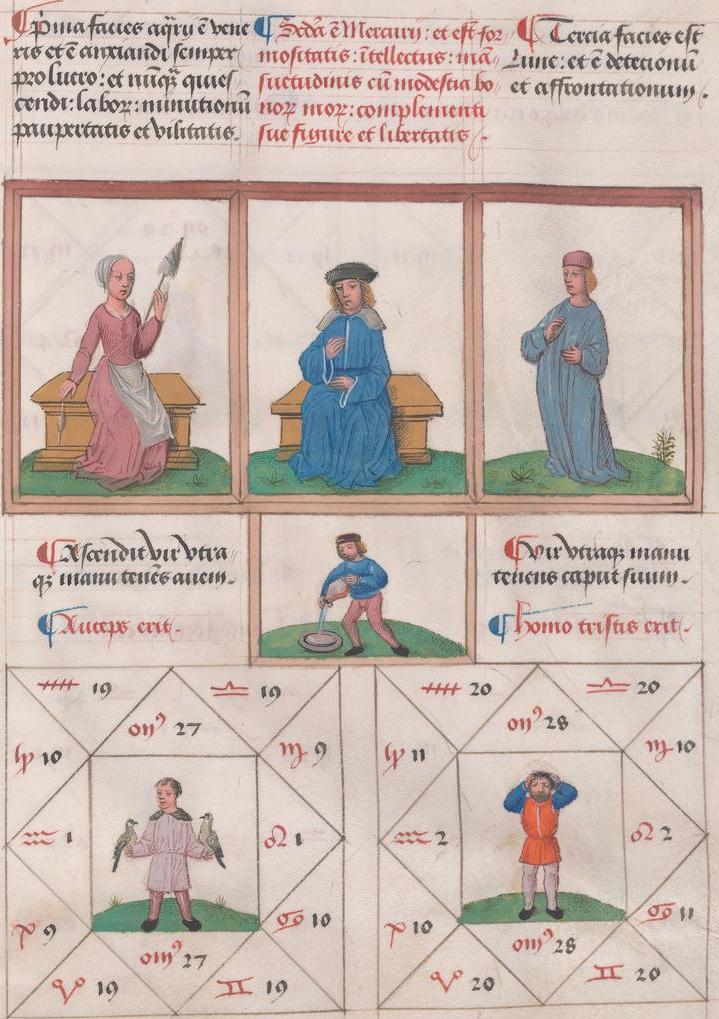 Prima facies aq̃rij ẽ vene
ris et ẽ anxiandi semper
pro lucro: et nũq̃ȝ quies
cendi: labor: minutionũ
paupertatis et vilitatis.
Sedã ẽ Mercurij: et est for
mositatis: ĩtellectus: mã
suetudinis cũ modestia bo
nor mor: complementi
sue figure et libertatis.
Tercia facies est
Lune: et ẽ detectionũ
et affrontationum.
Ascendit vir vtra
qȝ manu tenẽs auem.
Auceps erit.
Vir vtraqȝ manu
tenens caput suum.
Homo tristis erit.
19 19
27
10 9
1 1
9 10
27
19 19
20 20
28
11 10
2 2
10 11
28
20 20